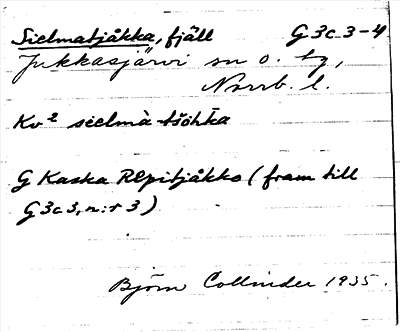 Sielmatjåkka, fjäll G3c3-4
Jukkasjärvi sn o. tg,
Norrb. l.
Kv² sielmà-tšohka
G Kaska Repitjåkko (fram till
G3c3, n:r 3)
Björn Collinder 1935.